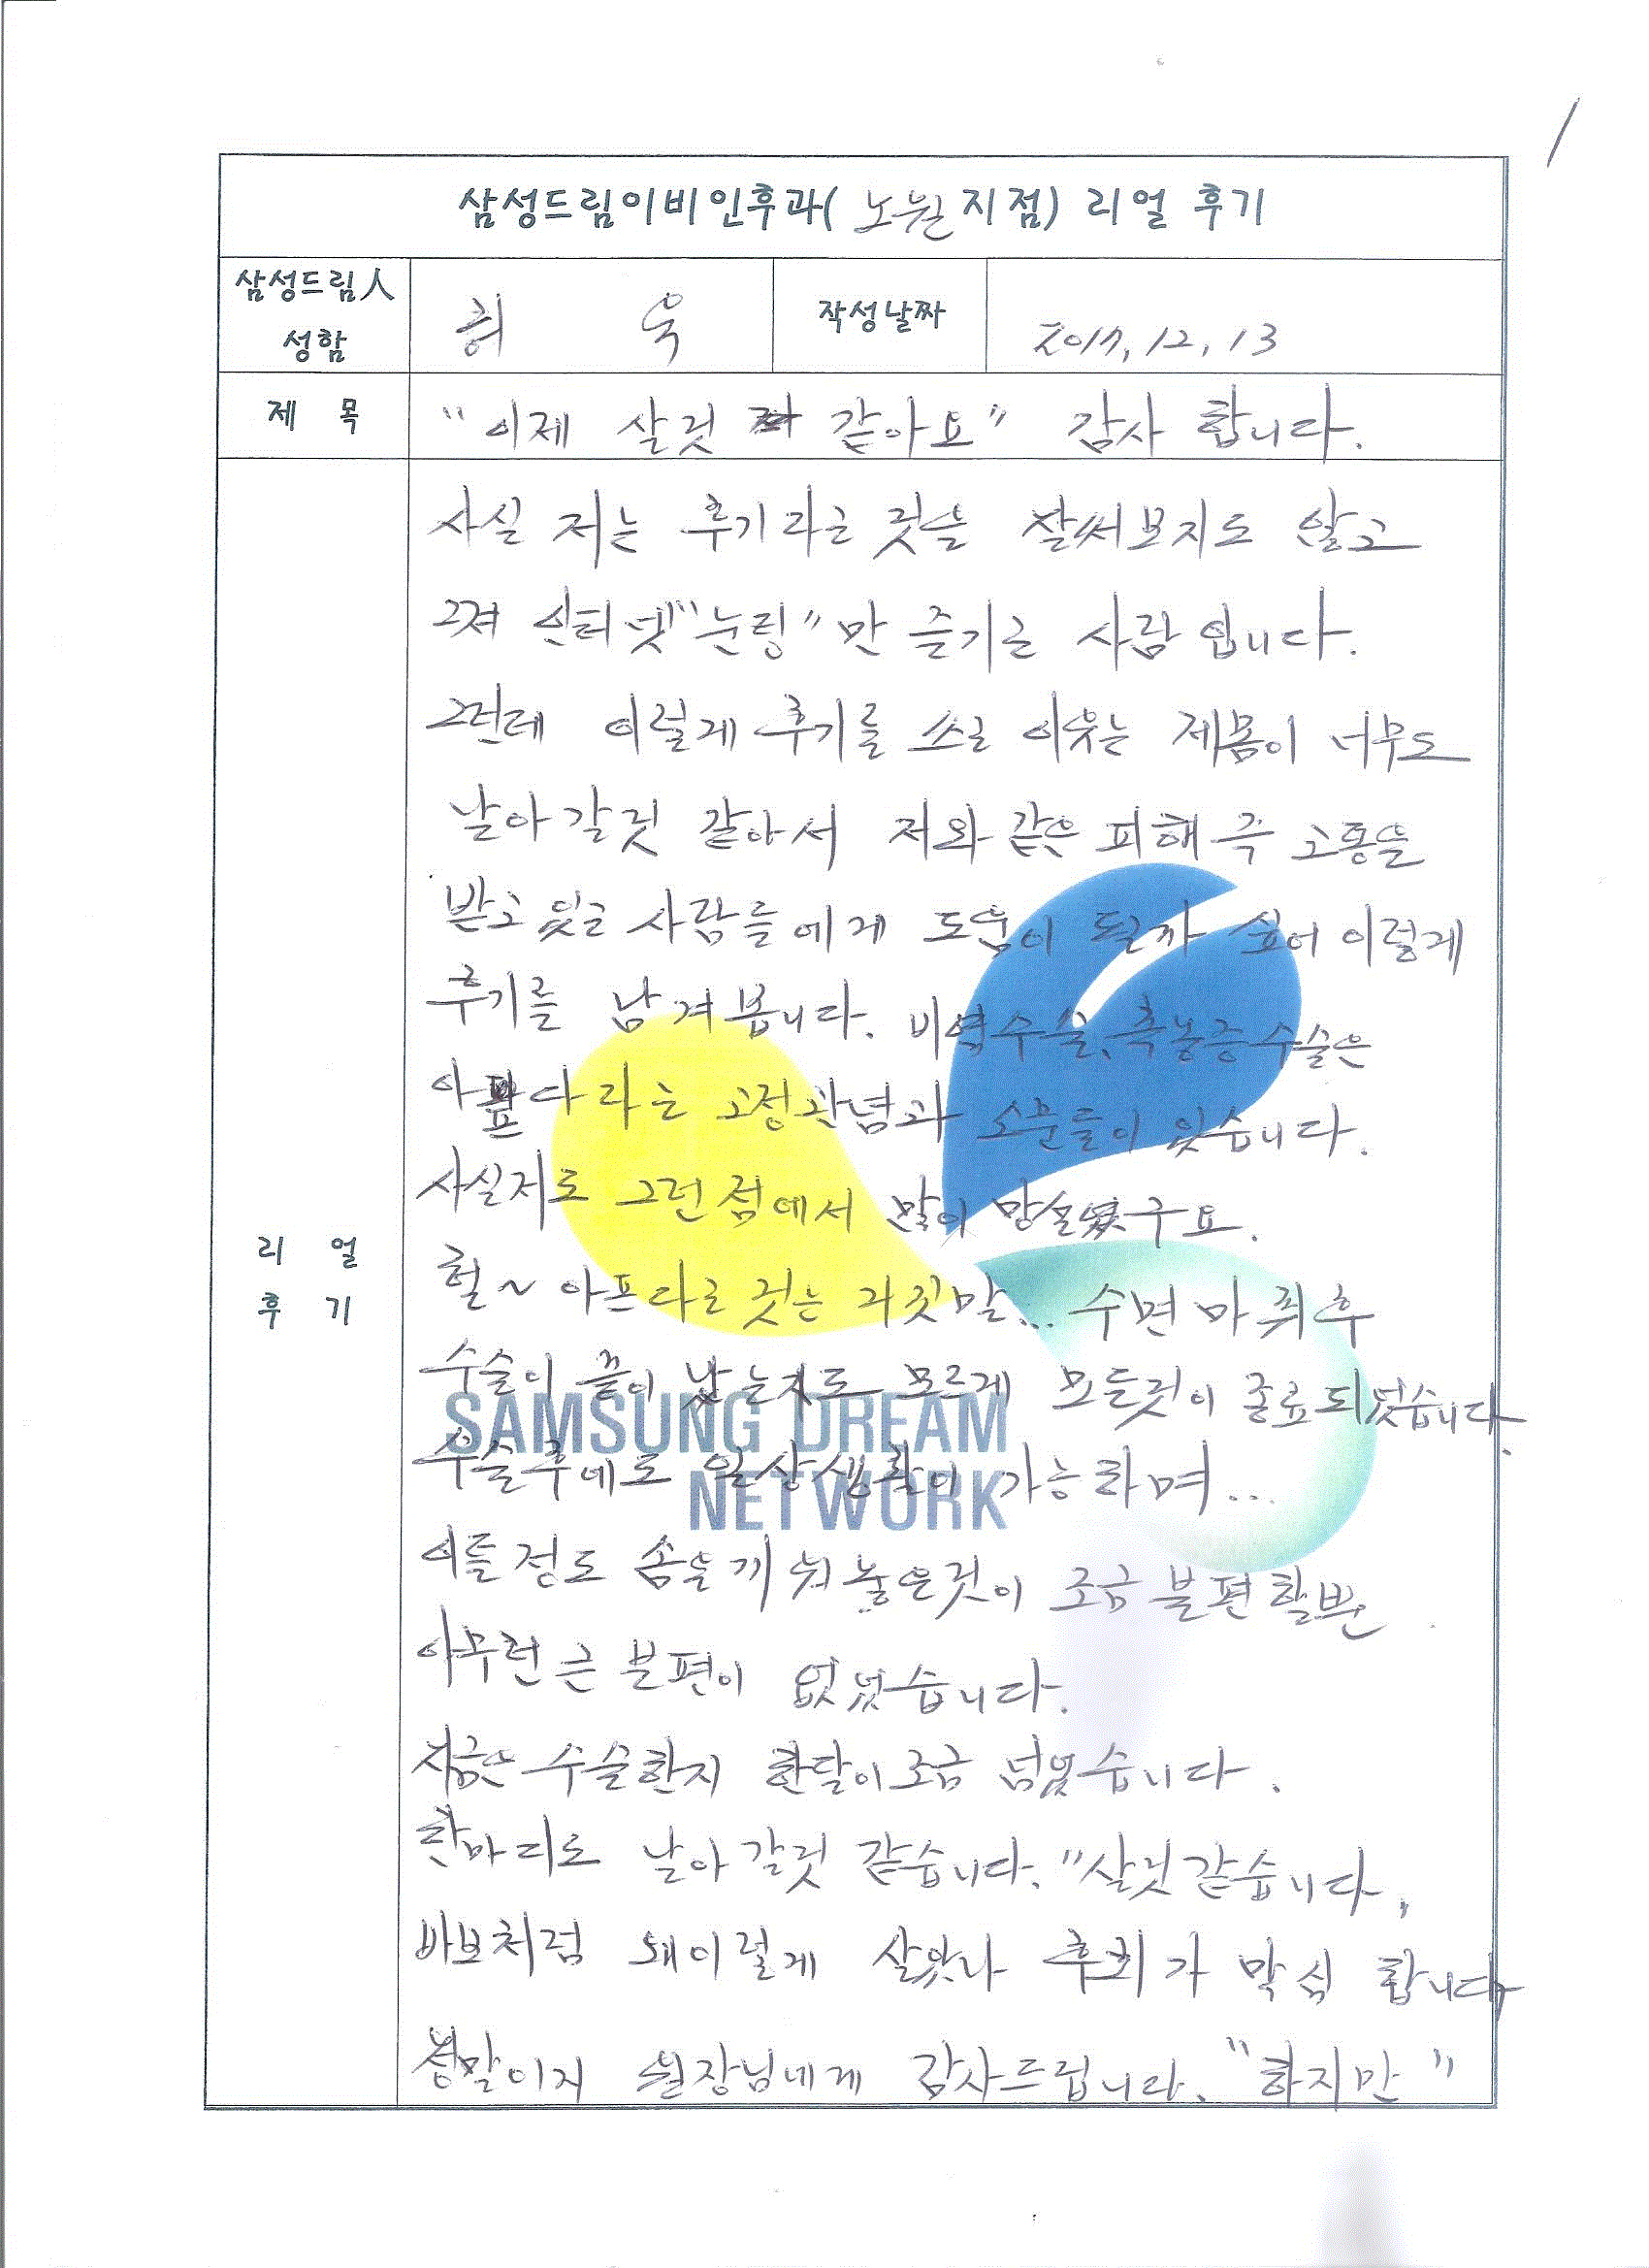 1
삼성드림이비인후과( 노원 지점) 리얼 후기
삼성드림人
성함
허 욱
작성날짜
2017, 12, 13
제 목
"이제 살것 같아요" 감사 합니다.
리 얼
후 기
사실 저는 후기라는 것을 잘써보지도 않고
그져 인터넷"눈팅"만 즐기는 사람 입니다.
그런데 이렇게 후기를 쓰는 이웃는 제몸이 너무도
날아갈것 같아서 저와 같은 피해 즉 고통을
받고 있는 사람들에게 도움이 될까 싶어 이렇게
후기를 남겨봅니다. 비염수술, 축농증수술은
아프다라는 고정관념과 소문들이 있습니다.
사실저도 그런점에서 많이 망설였구요.
헐~ 아프다는 것는 거짓말... 수면마취후
수술이 끝이 났는지도 모르게 모든것이 종료되었습니다.
수술후에도 일상생활이 가능하며...
이틀정도 솜을끼워놓은것이 조금 불편할뿐
아무런 큰 불편이 없었습니다.
지금은 수술한지 한달이조금 넘었습니다.
한마디로 날아갈것 같습니다. "살것같습니다,
바보처럼 왜이렇게 살았나 후회가 막심 합니다
정말이지 원장님네게 감사드립니다. "하지만"
SAMSUNG DREAM
NETWORK